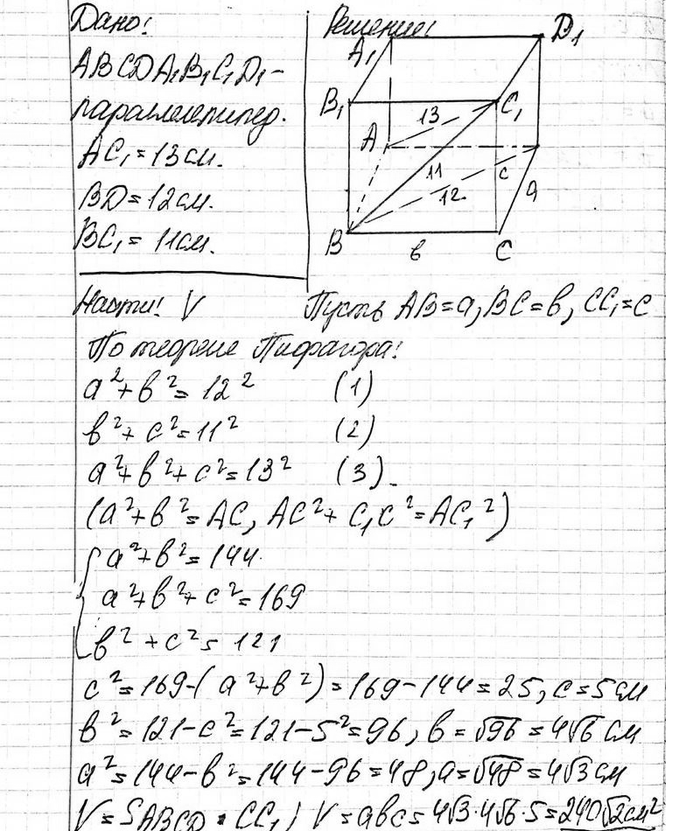 Дано: Решение:
ABCDA₁B₁C₁D₁ -
параллелепипед.
AC₁ = 13 см.
BD = 12 см.
BC₁ = 11 см.
A₁ D₁
B₁ C₁
13
A
11 c
12 a
B в C
Найти: V Пусть AB = a, BC = в, CC₁ = c
По теореме Пифагора:
a² + в² = 12² (1)
в² + c² = 11² (2)
a² + в² + c² = 13² (3).
(a² + в² = AC, AC² + C₁C² = AC₁²)
a² + в² = 144
a² + в² + c² = 169
в² + c² = 121
c² = 169 - (a² + в²) = 169 - 144 = 25, c = 5 см
в² = 121 - c² = 121 - 5² = 96, в = √96 = 4√6 см
a² = 144 - в² = 144 - 96 = 48, a = √48 = 4√3 см
V = S ABCD • CC₁, V = aвc = 4√3 · 4√6 · 5 = 240√2 см²